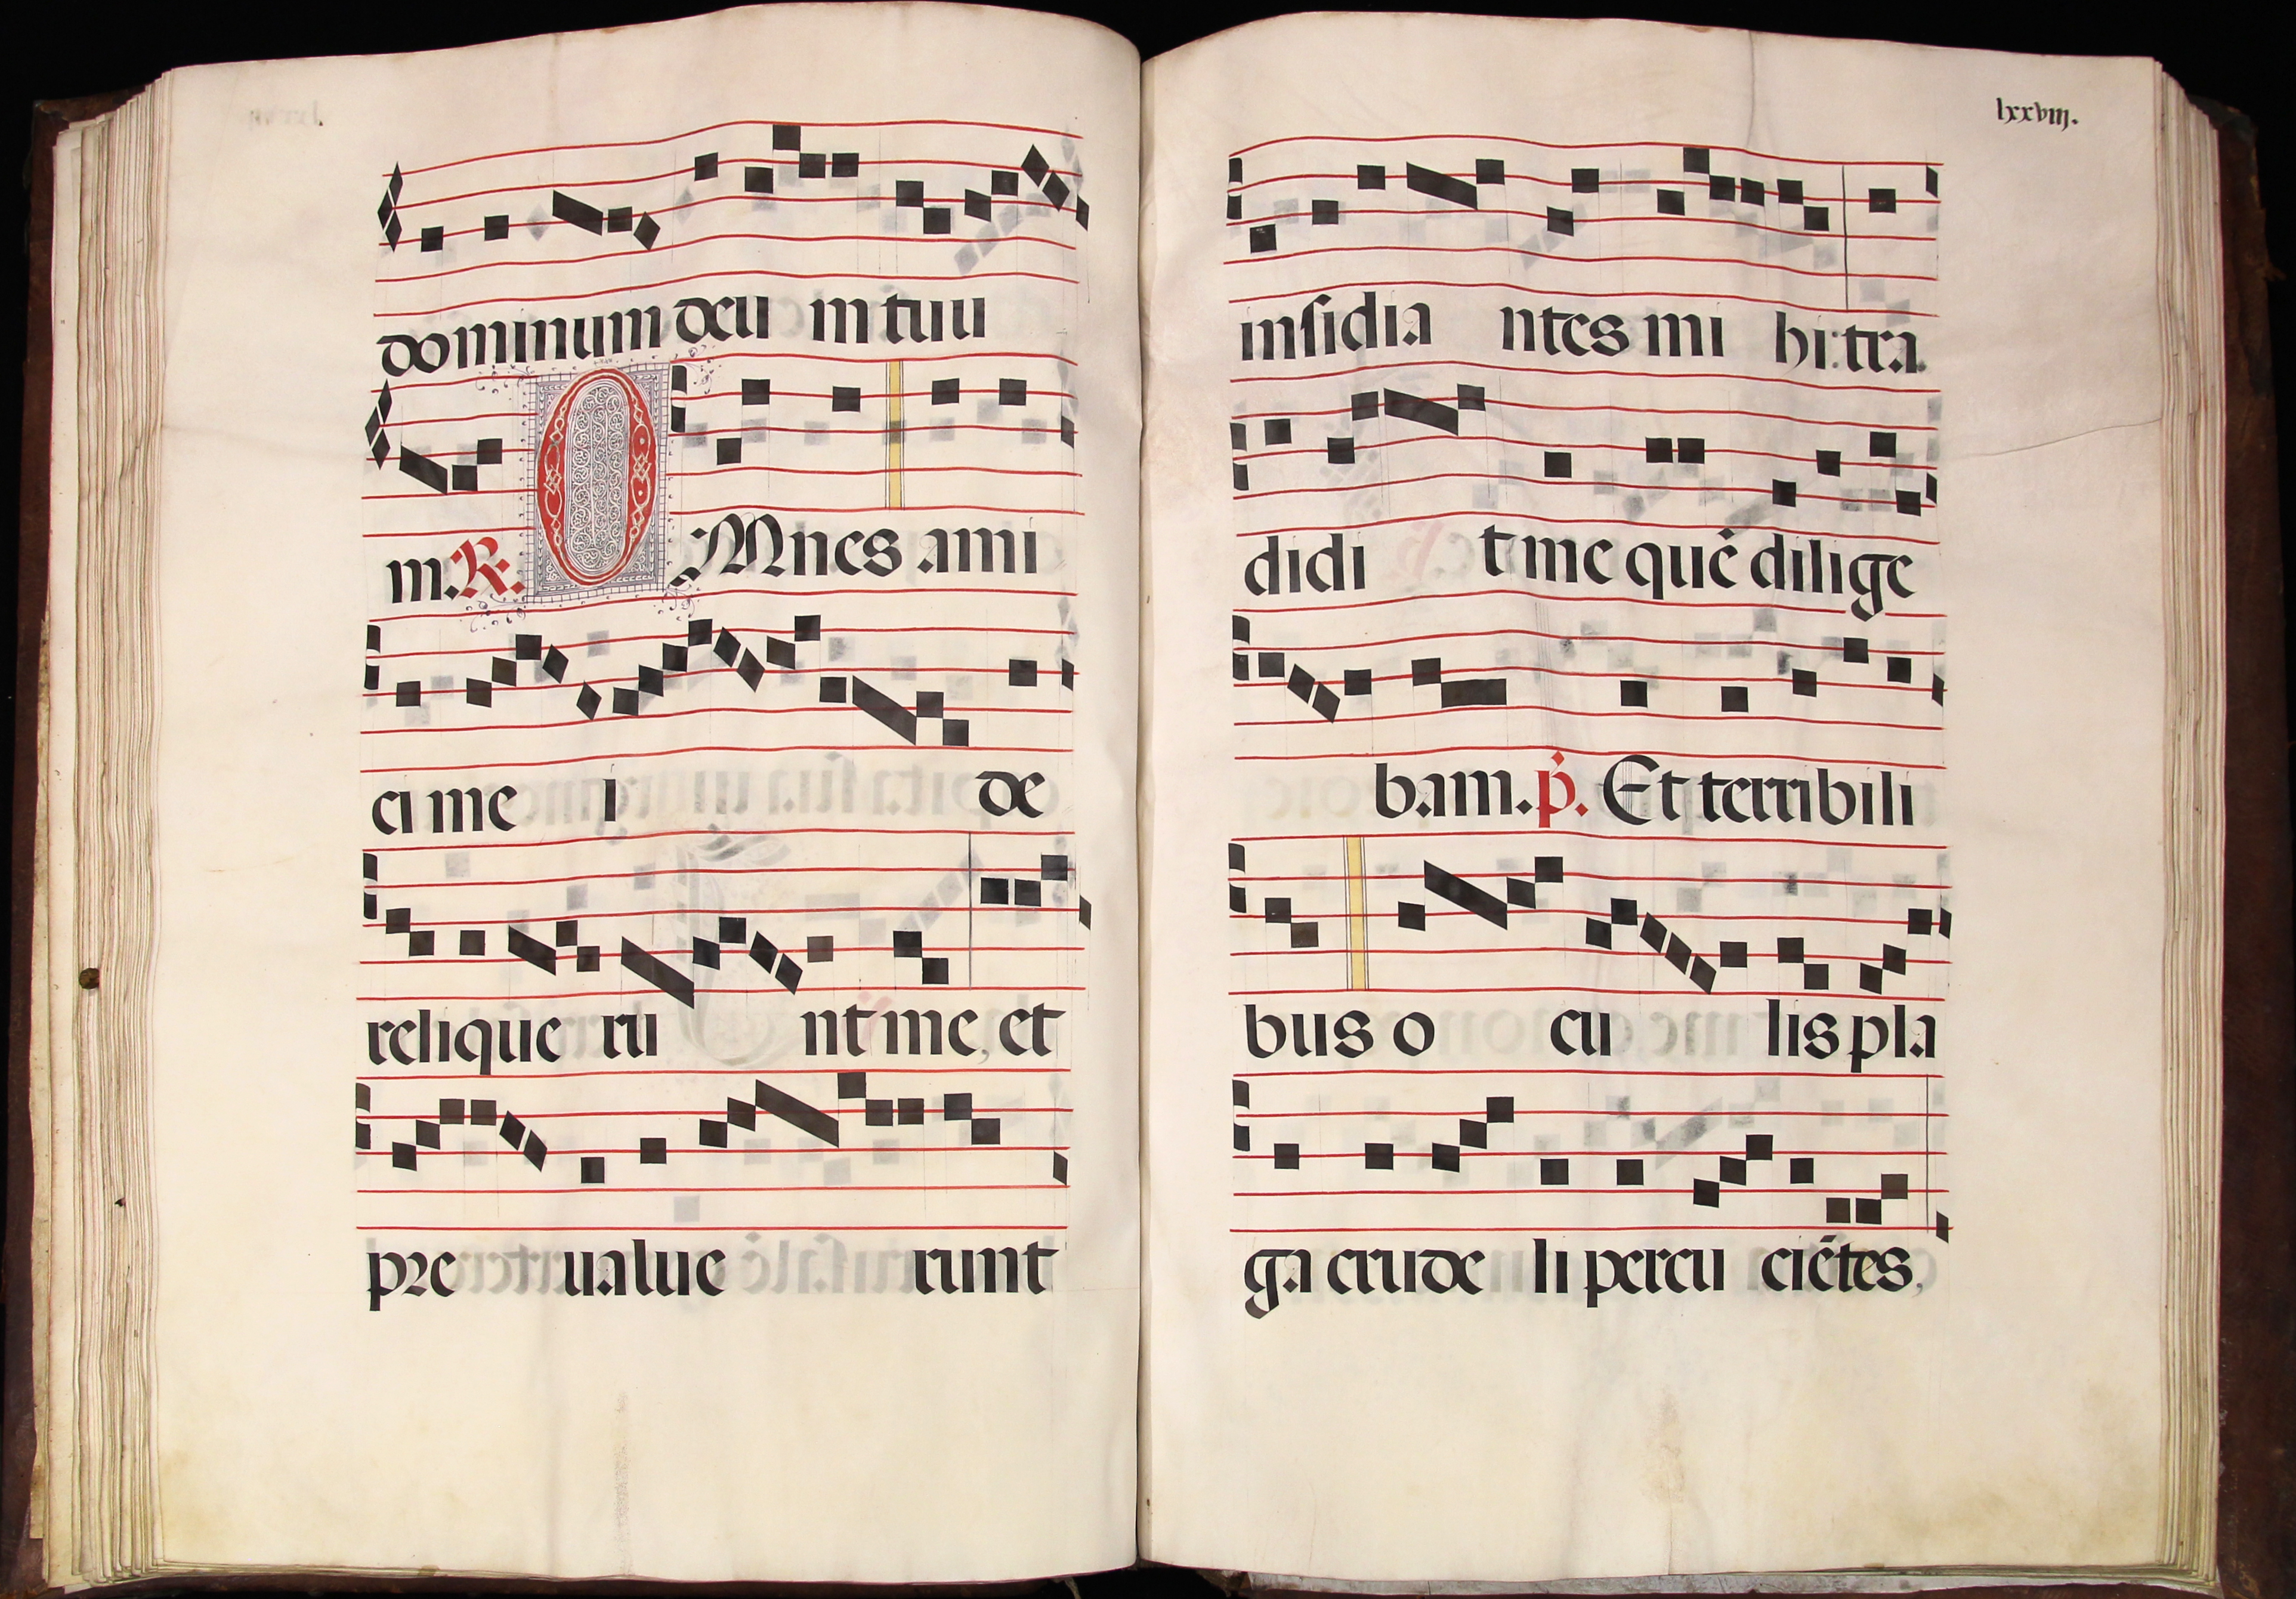 dominum deu m tuu
m. R. OMnes ami
ci me i de
relique ru nt me, et
pre ualue runt
lxxviij.
insidia ntes mi hi: tra
didi t me quē dilige
bam. p̄. Et terribili
bus o cu lis pla
ga crude li percu ciētes,